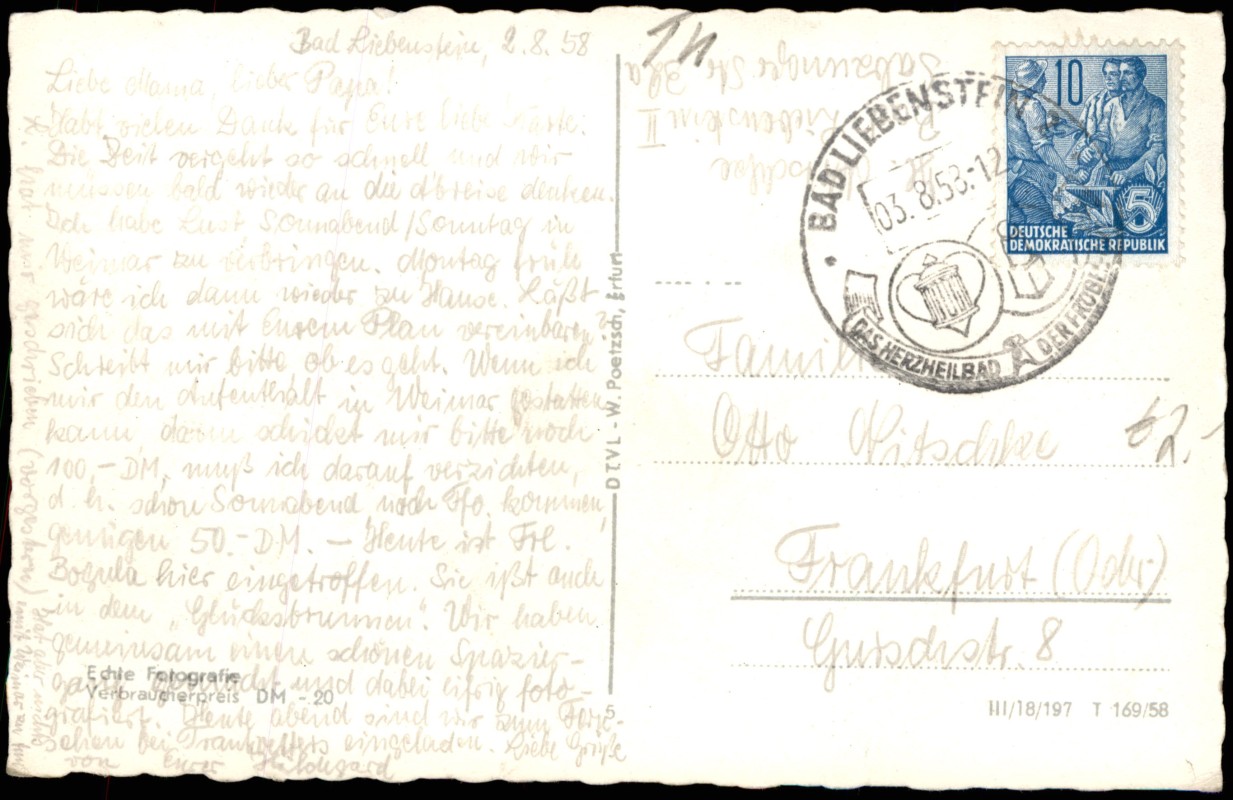 Bad Liebenstein, 2.8.58
Liebe Mama, lieber Papa!
Habt vielen Dank für Eure liebe Karte.
Die Zeit vergeht so schnell und wir
müssen bald wieder an die Abreise denken.
Ich habe Lust Sonnabend/Sonntag in
Weimar zu verbringen. Montag früh
wäre ich dann wieder zu Hause. Läßt
sich das mit Eurem Plan vereinbaren?
Schreibt mir bitte ob es geht. Wenn ich
mir den Aufenthalt in Weimar gestatten
kann, dann schickt mir bitte noch
100,- DM, muß ich darauf verzichten,
d. h. schon Sonnabend nach Ffo. kommen,
genügen 50.- DM. – Heute ist Frl.
hier eingetroffen. Sie ißt auch
in dem "Glücksbrunnen". Wir haben
gemeinsam einen schönen Spazier-
gang und dabei eifrig foto-
grafiert. Heute abend sind wir zum Fernse-
hen bei eingeladen. Liebe Grüße
von Eurer Hildegard
Echte Fotografie
Verbraucherpreis DM -20
DTVL - W. Poetzsch, Erfurt
5
II
BAD LIEBENSTEIN
03. 8. 58.-12
DAS HERZHEILBAD
10
5
DEUTSCHE
DEMOKRATISCHE REPUBLIK
Familie
Otto Nitschke
62.-
Frankfurt (Oder)
8
III/18/197 T 169/58